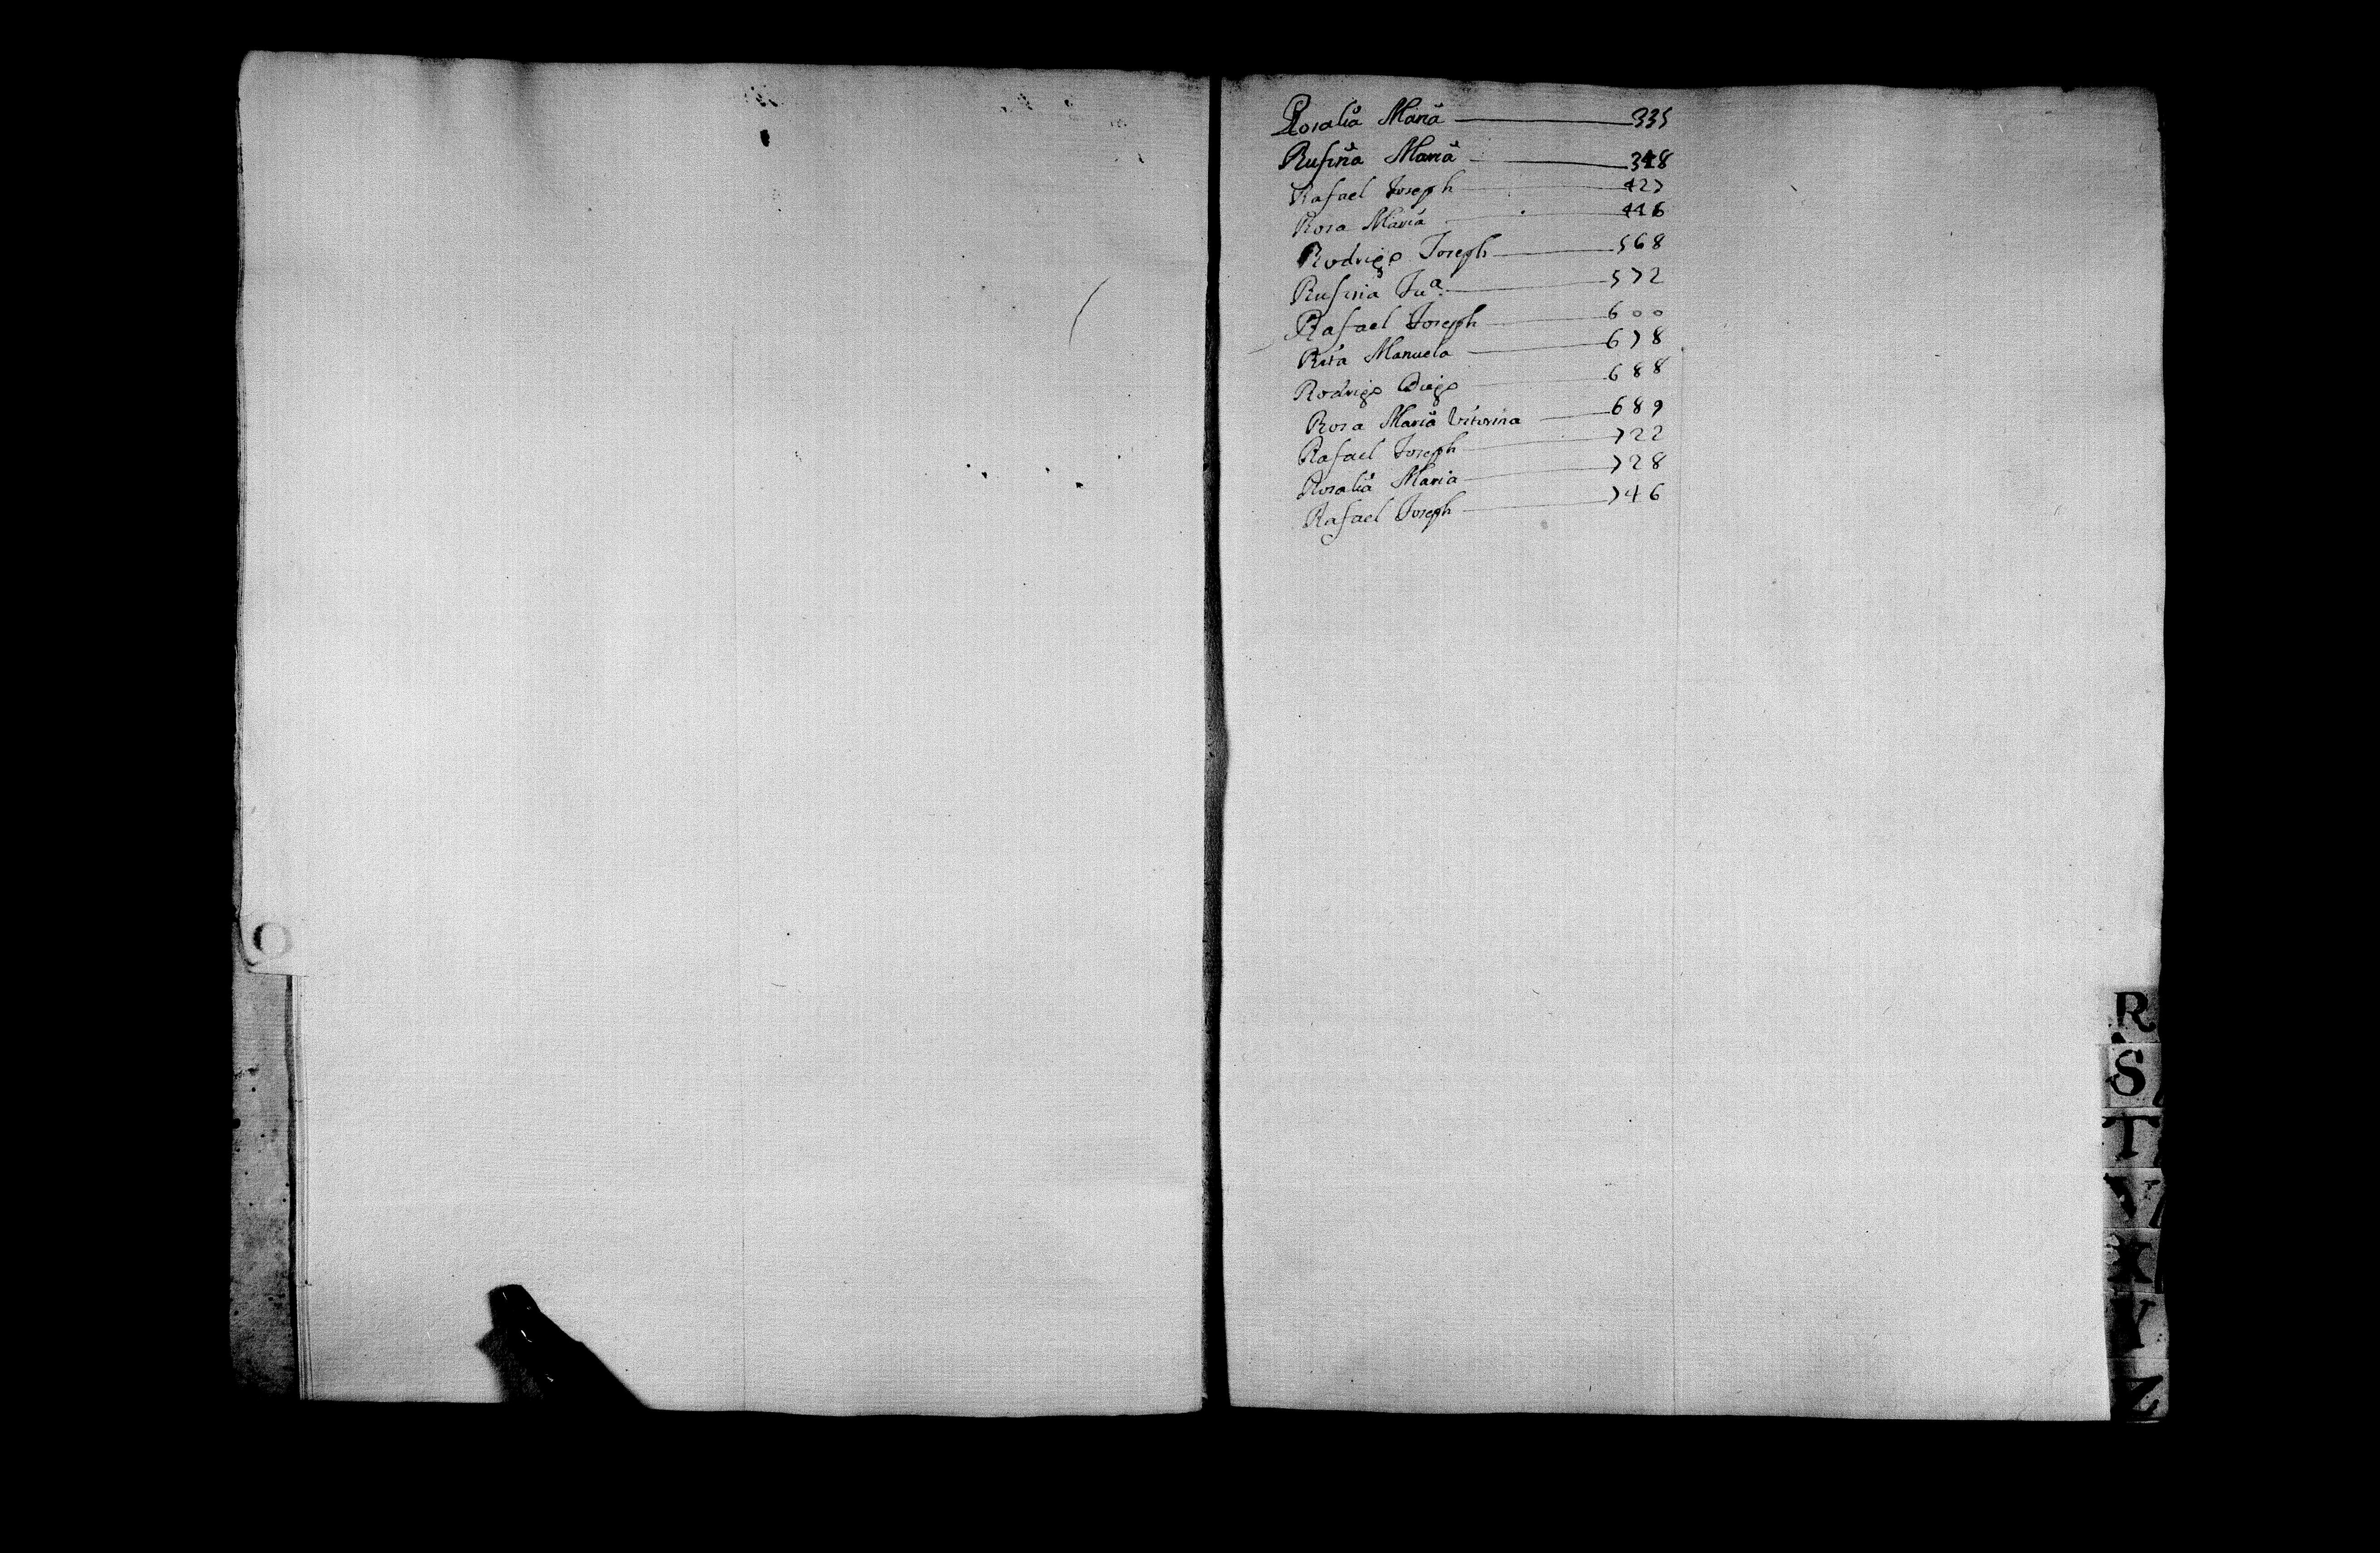 Rosalia Maria 335
Rufina Maria 348
Rafael Joseph 427
Rosa Maria 446
Rodrigo Joseph 568
Rufina Jua. 572
Rafael Joseph 600
Rita Manuela 678
Rodrigo Diego 688
Rosa Maria Vitorina 689
Rafael Joseph 722
Rosalia Maria 728
Rafael Joseph 746
O
R
S
T
X
Y
Z